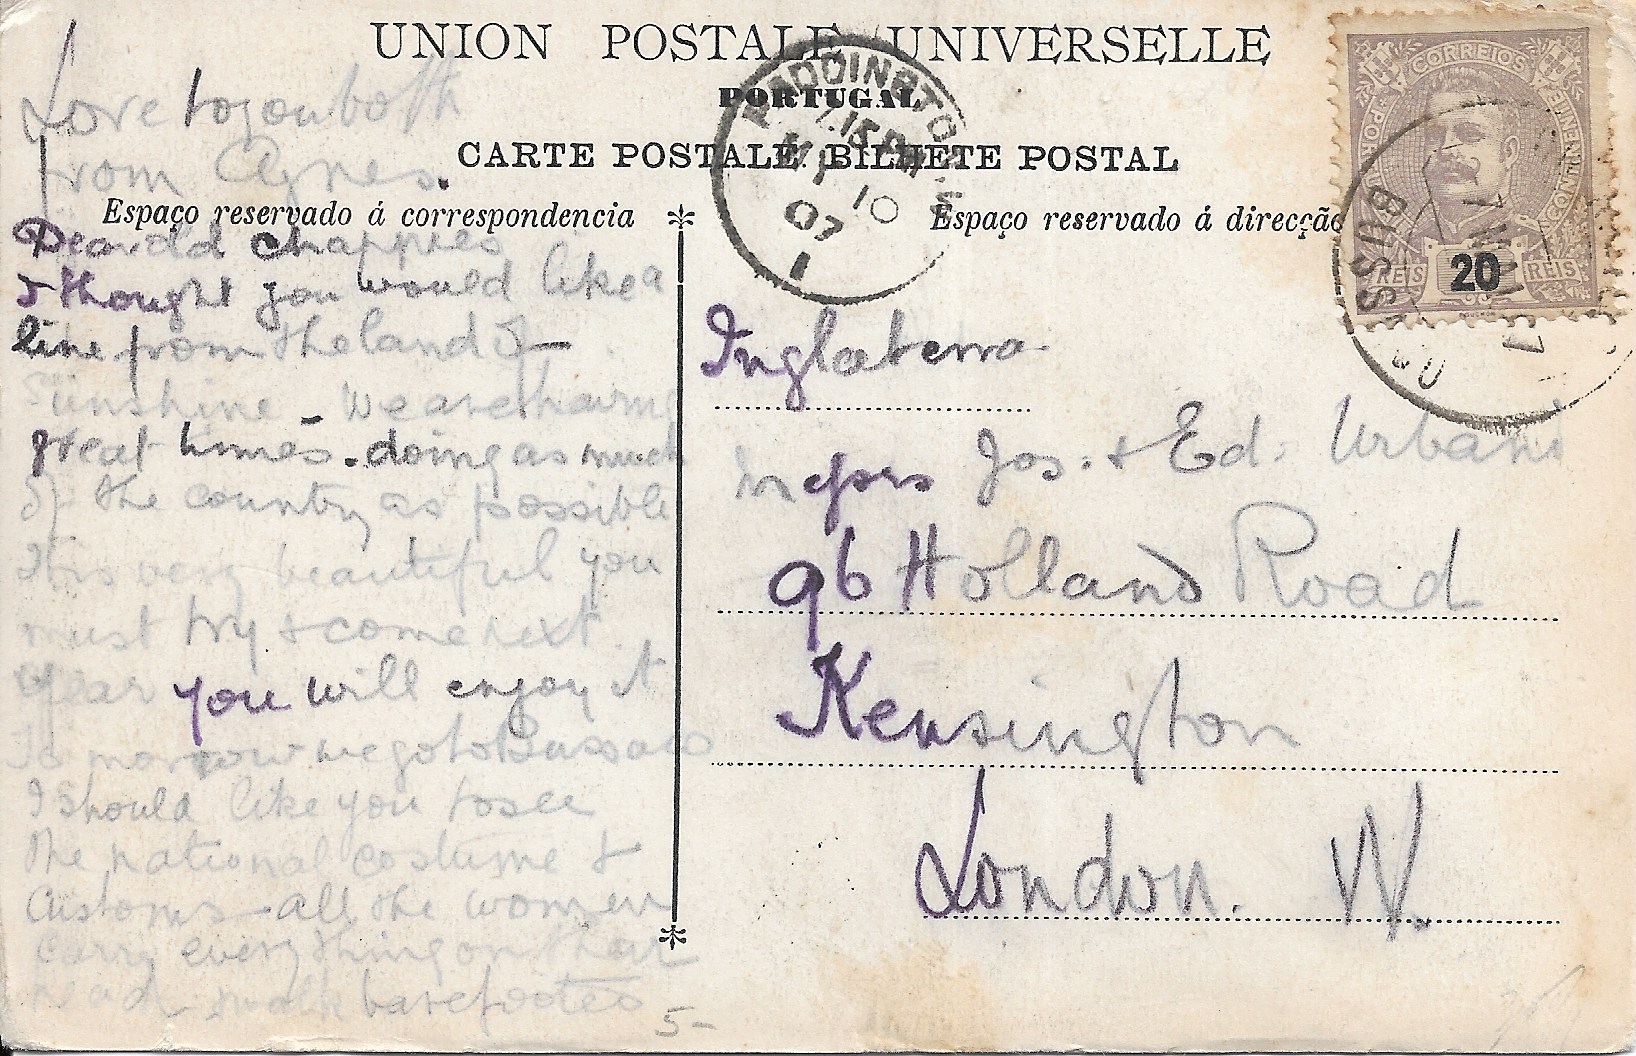 UNION POSTALE UNIVERSELLE
PORTUGAL
CARTE POSTALE. BILHETE POSTAL
Espaço reservado á correspondencia
Espaço reservado á direcção
Love to you both
from Agnes.
Dear old chappies
I thought you would like a
line from the land of
Sunshine - We are having
great times. doing as much
of the country as possible
It is very beautiful you
must try & come next
year you will enjoy it
To morrow we go to Bussaco
I should like you to see
the national costume &
customs - all the women
carry everything on their
head & walk barefooted
5-
Inglaterra
Messrs Jos. & Ed. Urbani
96 Holland Road
Kensington
London. W.
PADDINGTON. W.
7.15 PM
MY 10
07
1
CORREIOS
PORTUGAL
CONTINENTE
REIS 20 REIS
MOUCHON
BUSSACO